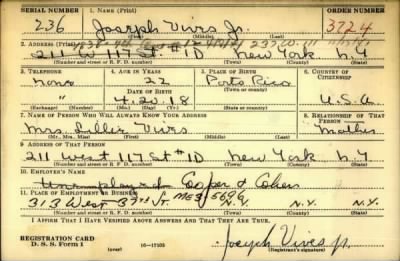 SERIAL NUMBER 1. NAME (Print) ORDER NUMBER
236 Joseph Vives Jr. 3724
(First) (Middle) (Last)
2. ADDRESS (Print)
211 W 117 St. #1D New York N.Y.
(Number and street or R. F. D. number) (Town) (County) (State)
3. TELEPHONE 4. AGE IN YEARS 5. PLACE OF BIRTH 6. COUNTRY OF CITIZENSHIP
none 22 Porto Rico
DATE OF BIRTH
4.20.18 U.S.A.
(Exchange) (Number) (Mo.) (Day) (Yr.) (State or country)
7. NAME OF PERSON WHO WILL ALWAYS KNOW YOUR ADDRESS 8. RELATIONSHIP OF THAT PERSON
Mrs. Vives Mother
(Mr., Mrs., Miss) (First) (Middle) (Last)
9. ADDRESS OF THAT PERSON
211 West 117 St #1D New York N.Y.
(Number and street or R. F. D. number) (Town) (County) (State)
10. EMPLOYER'S NAME
Unemployed Cooper & Cohen
11. PLACE OF EMPLOYMENT OR BUSINESS
313 West 37th St. ME3 5696 N.Y. N.Y.
(Number and street or R. F. D. number) (Town) (County) (State)
I AFFIRM THAT I HAVE VERIFIED ABOVE ANSWERS AND THAT THEY ARE TRUE.
REGISTRATION CARD
D. S. S. Form 1 (over) 16—17105 Joseph Vives Jr.
(Registrant's signature)